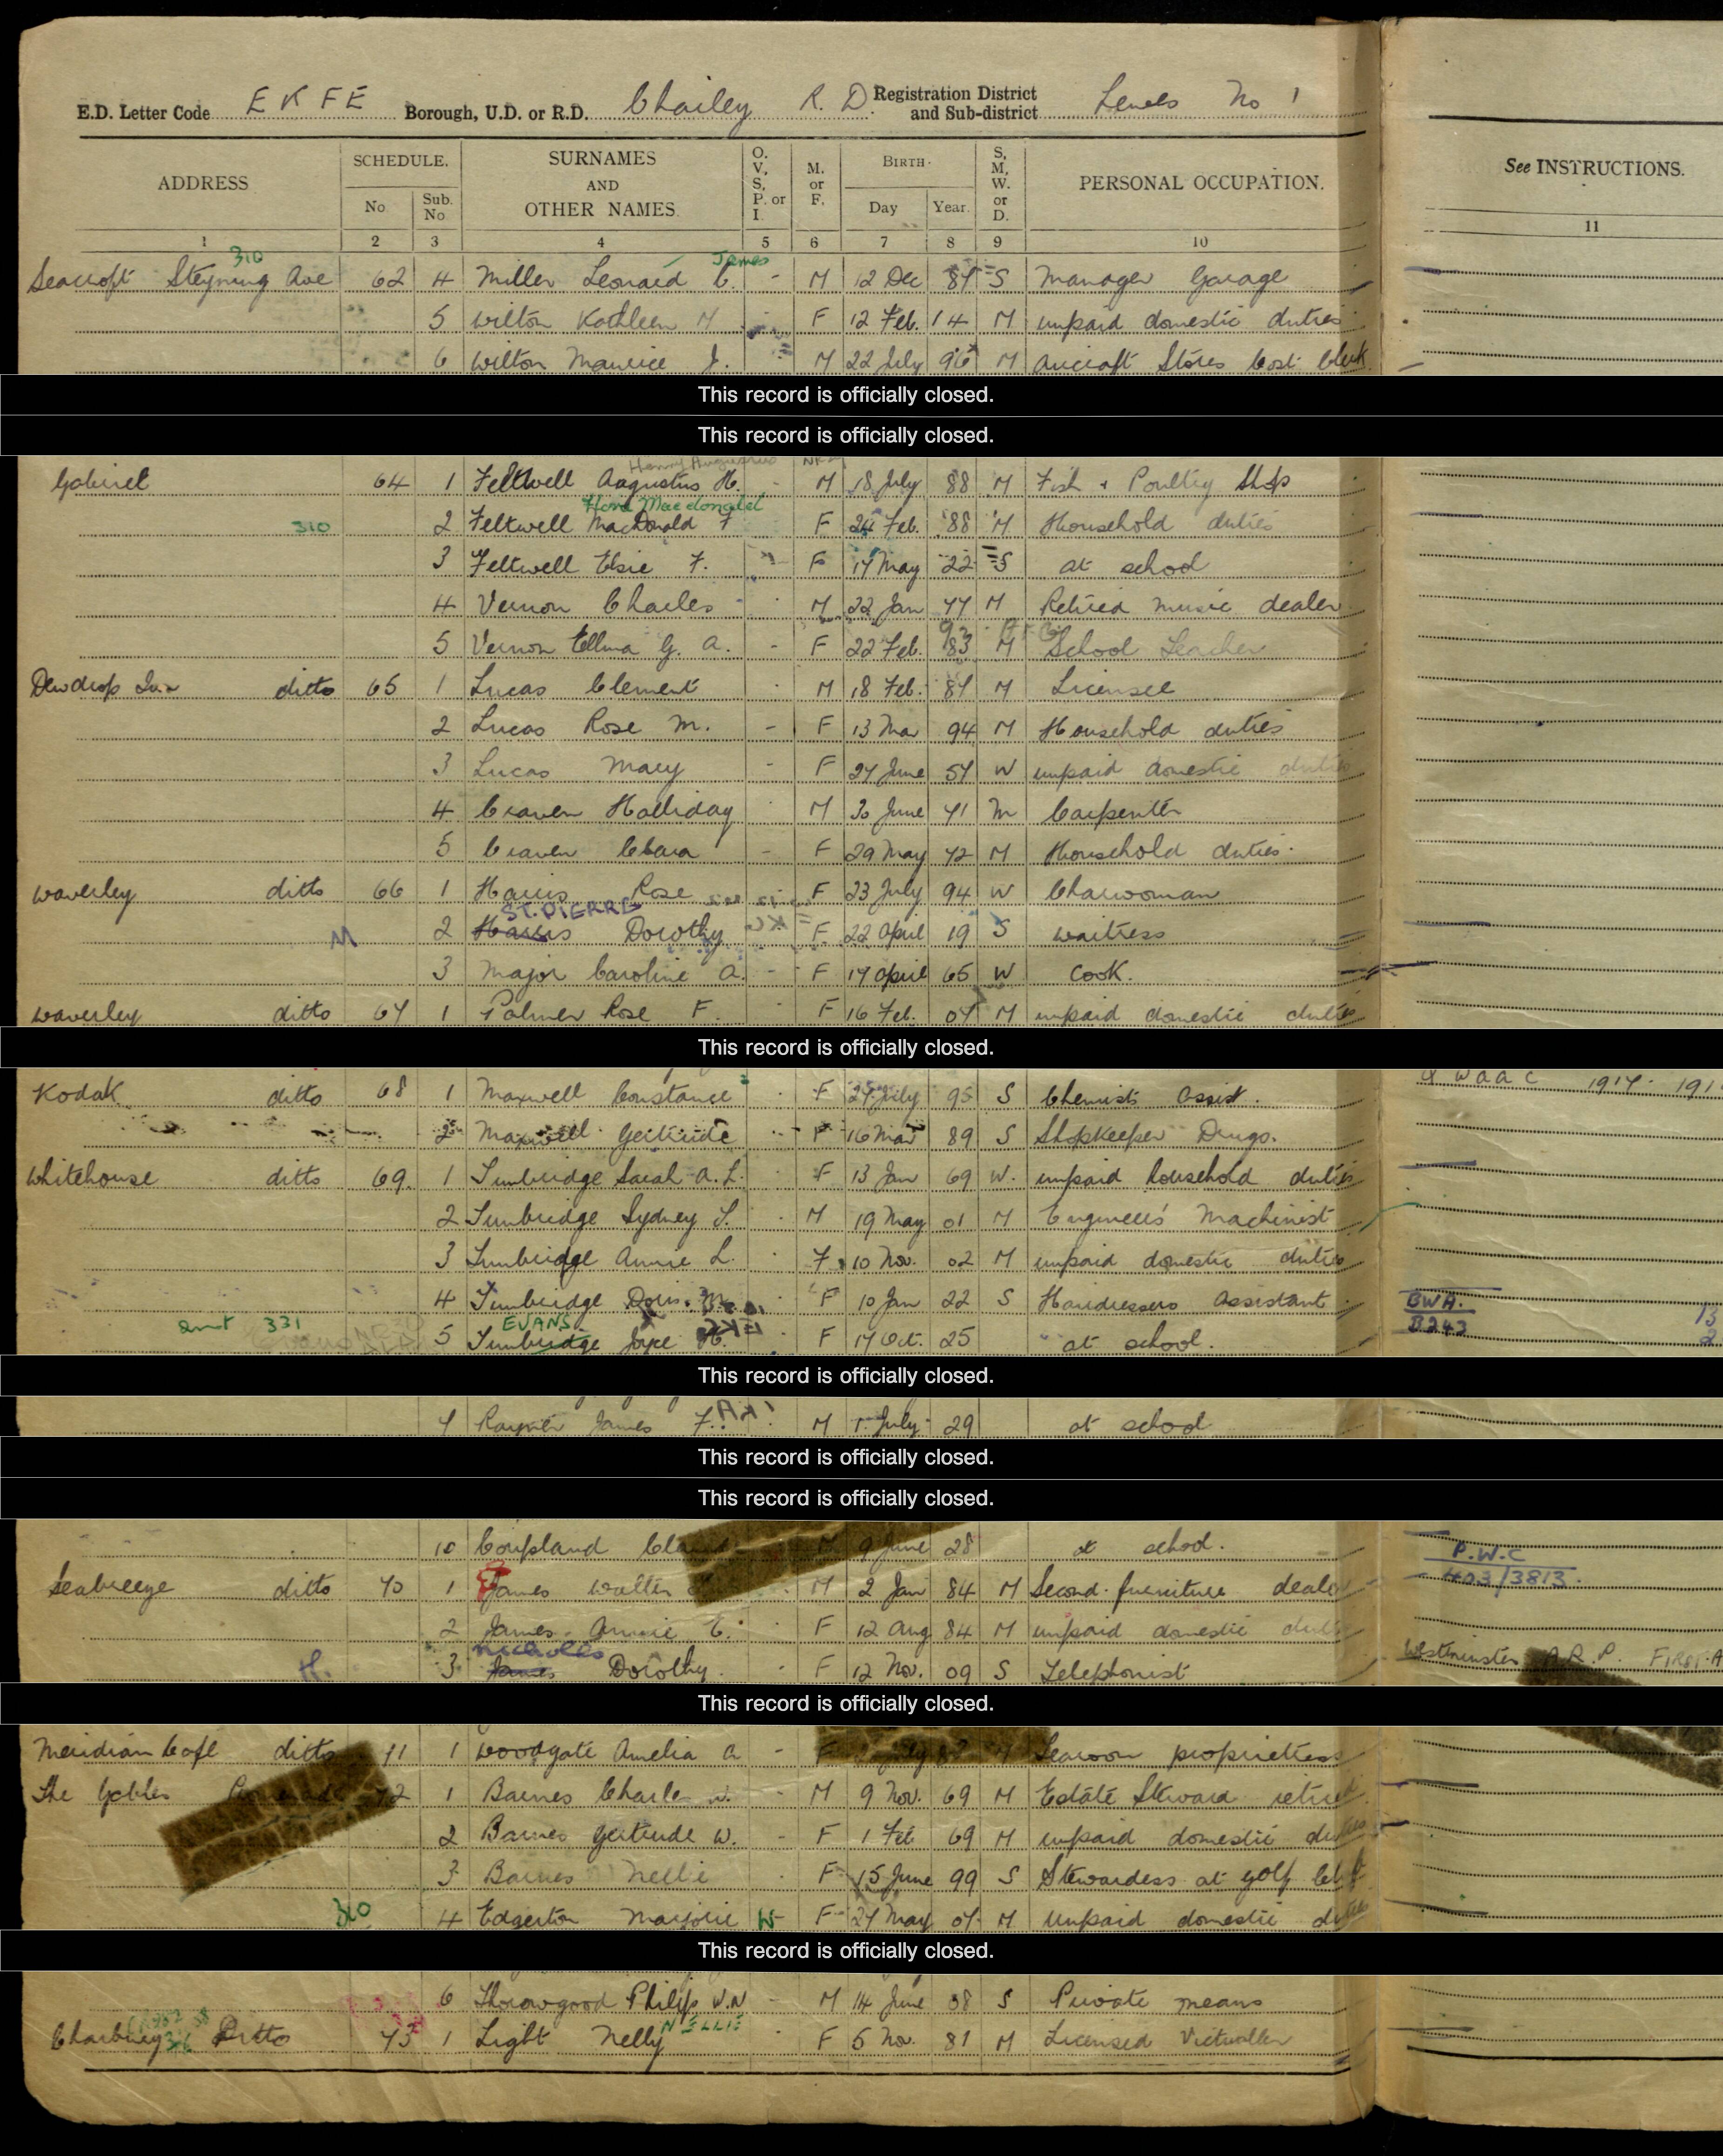 E.D. Letter Code E K F E Borough, U.D. or R.D. Chailey R. D. Registration District and Sub-district Lewes No 1
ADDRESS SCHEDULE. SURNAMES AND OTHER NAMES. O. V, S, P. or I. M. or F. BIRTH. S, M, W. or D. PERSONAL OCCUPATION. See INSTRUCTIONS.
No. Sub. No. Day Year.
1 2 3 4 5 6 7 8 9 10 11
310 James
Seacroft Steyning Ave 62 4 Miller Leonard C. - M 12 Dec 87 S Manager Garage
5 Wilton Kathleen M F 12 Feb. 14 M unpaid domestic duties
6 Wilton Maurice J. M 22 July 96 M Aircraft Stores Cost Clerk
This record is officially closed.
This record is officially closed.
Henry Augustus
64 1 Feltwell Augustus H. - M 18 July 88 M Fish + Poultry Shop
Flora Macdonald
310 2 Feltwell MacDonald F F 24 Feb. 88 M Household duties
3 Feltwell Elsie F. F 17 May 22 S at school
4 Vernon Charles M 22 Jan 77 M Retired music dealer
93
5 Vernon Ellma G. A. - F 22 Feb. 83 M School Teacher
Dewdrop Inn ditto 65 1 Lucas Clement M 18 Feb. 87 M Licensee
2 Lucas Rose M. - F 13 Mar 94 M Household duties
3 Lucas Mary - F 27 June 57 W unpaid domestic duties
4 Craven Halliday M 30 June 71 M Carpenter
5 Craven Clara - F 29 May 72 M Household duties.
Waverley ditto 66 1 Harris Rose F 23 July 94 W Charwoman
ST. PIERRE
M 2 Harris Dorothy F 22 April 19 S waitress
3 Major Caroline A. - F 17 April 65 W Cook.
Waverley ditto 67 1 Palmer Rose F. F 16 Feb. 07 M unpaid domestic duties
This record is officially closed.
Kodak ditto 68 1 Maxwell Constance F 27 July 95 S Chemists Assist. W A A C 1917 - 191
2 Maxwell Gertrude F 16 Mar 89 S Shopkeeper Drugs.
Whitehouse ditto 69 1 Tumbridge Sarah A. L. F 13 Jan 69 W. unpaid household duties
2 Tumbridge Sydney S. M 19 May 01 M Engineers' Machinist
3 Tumbridge Annie L. F 10 Nov. 02 M unpaid domestic duties
4 Tumbridge Doris. M. F 10 Jan 22 S Hairdressers Assistant BWA. 13
EVANS
331 5 Tumbridge Joyce H. F 17 Oct. 25 at school. B243 2
This record is officially closed.
7 Rayner James F. M 1 July 29 at school
This record is officially closed.
This record is officially closed.
10 Coupland M 9 June 28 at school. P.W.C
Seabreeze ditto 70 1 James Walter M 2 Jan 84 M Second. furniture dealer 403/3813.
2 James Annie E. F 12 Aug 84 M unpaid domestic duties
Nicholls
H. 3 James Dorothy. F 12 Nov. 09 S Telephonist Westminster A.R.P. FIRST-A
This record is officially closed.
Meridian Cafe ditto 71 1 Woodgate Amelia A - F Tearoom proprietress
The Gables 72 1 Barnes Charles W. M 9 Nov. 69 M Estate Steward retired
2 Barnes Gertrude W. - F 1 Feb 69 M unpaid domestic duties
3 Barnes Nellie F 15 June 99 S Stewardess at golf club
310 4 Edgerton Marjorie W - F 27 May 07 M Unpaid domestic duties
This record is officially closed.
6 Thorowgood Philip W.N - M 14 June 08 S Private means
NELLIE
Ditto 73 1 Light Nelly F 5 Nov. 81 M Licensed Victualler